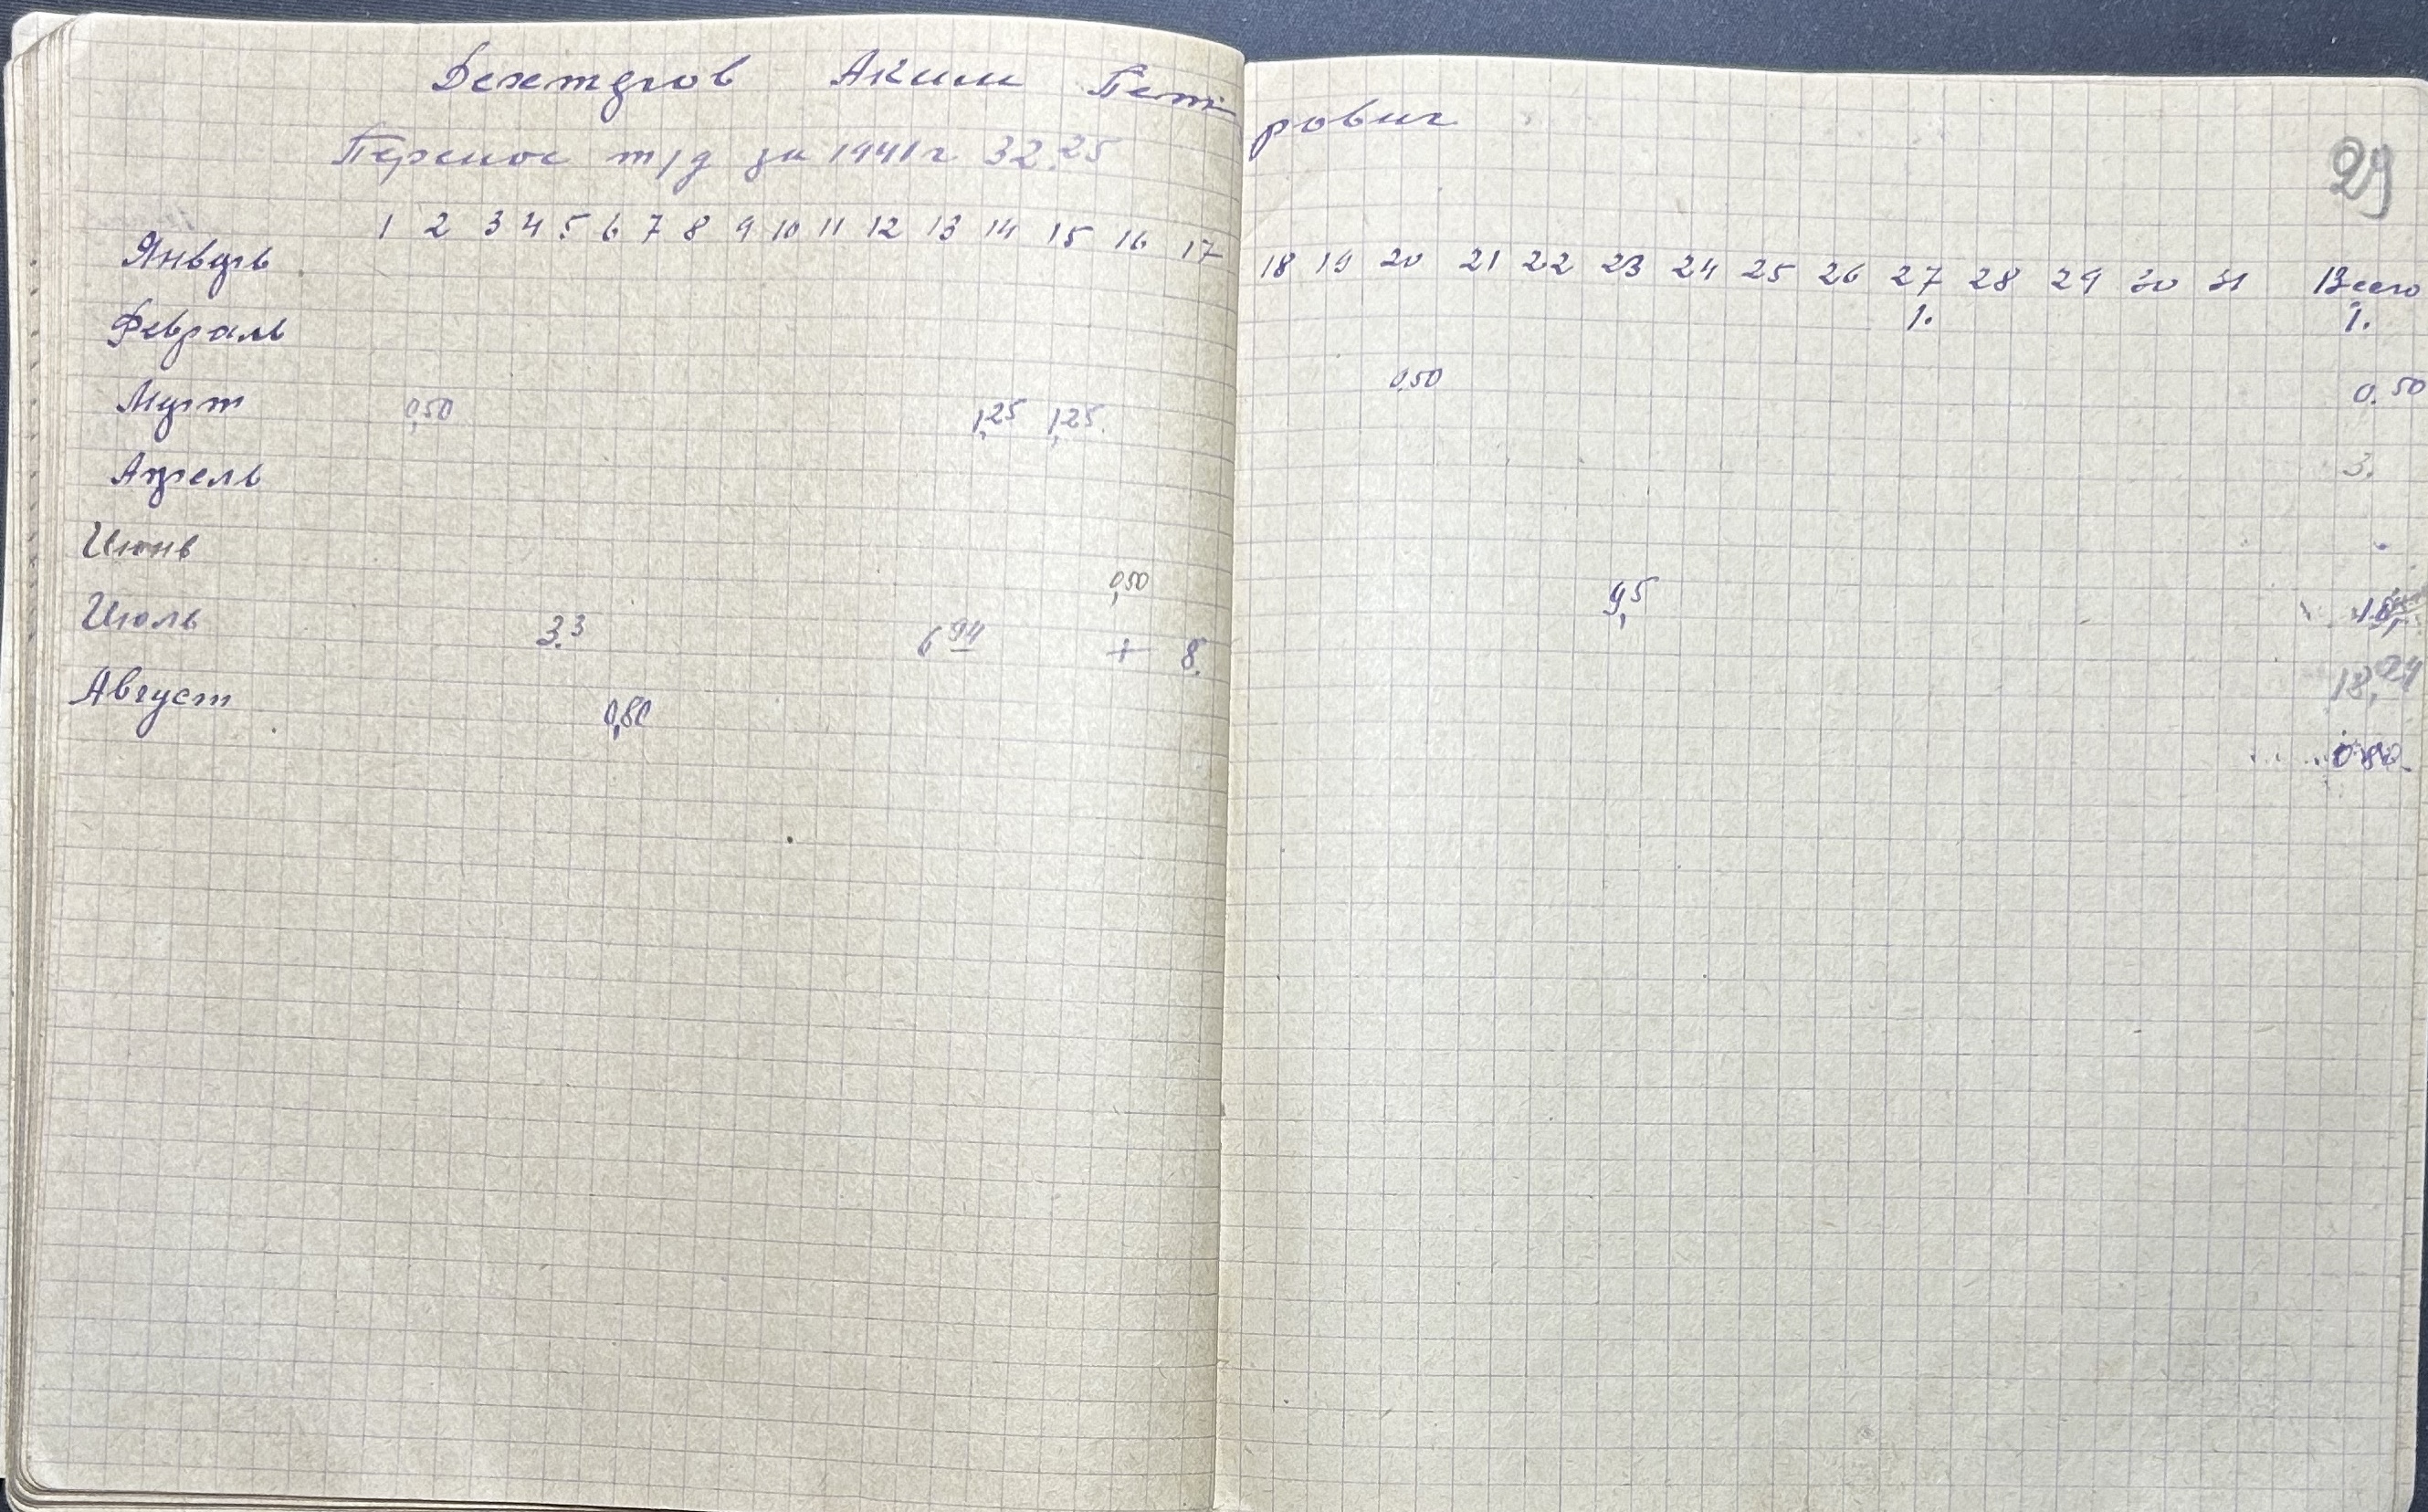 Дехтяров Аким Петрович
Перенос т/д за 1941 г 32.25
29
1 2 3 4 5 6 7 8 9 10 11 12 13 14 15 16 17 18 19 20 21 22 23 24 25 26 27 28 29 30 31 Всего
Январь 1. 1.
Февраль 0,50 0.50
Март 0,50 1,25 1,25. 3.
Апрель
Июнь 0,50 9,5
Июль 3.3 6 94 + 8. 18,24
Август 0,80 0.80.